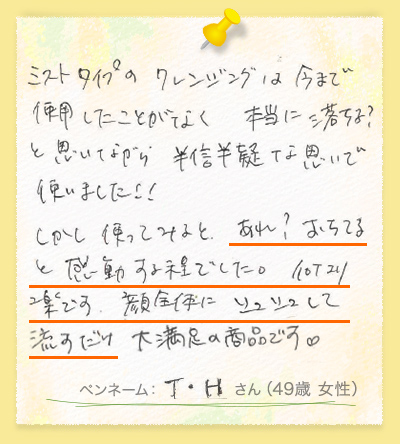 ミストタイプの クレンジングは 今まで
使用したことがなく 本当に 落ちる?
と思いながら 半信半疑な思いで
使いました!!
しかし 使ってみると、あれ? おちてる
と 感動する程でした。
楽です。顔全体に シュシュして
流すだけ 大満足の商品です。
ペンネーム: T・H さん(49歳 女性)